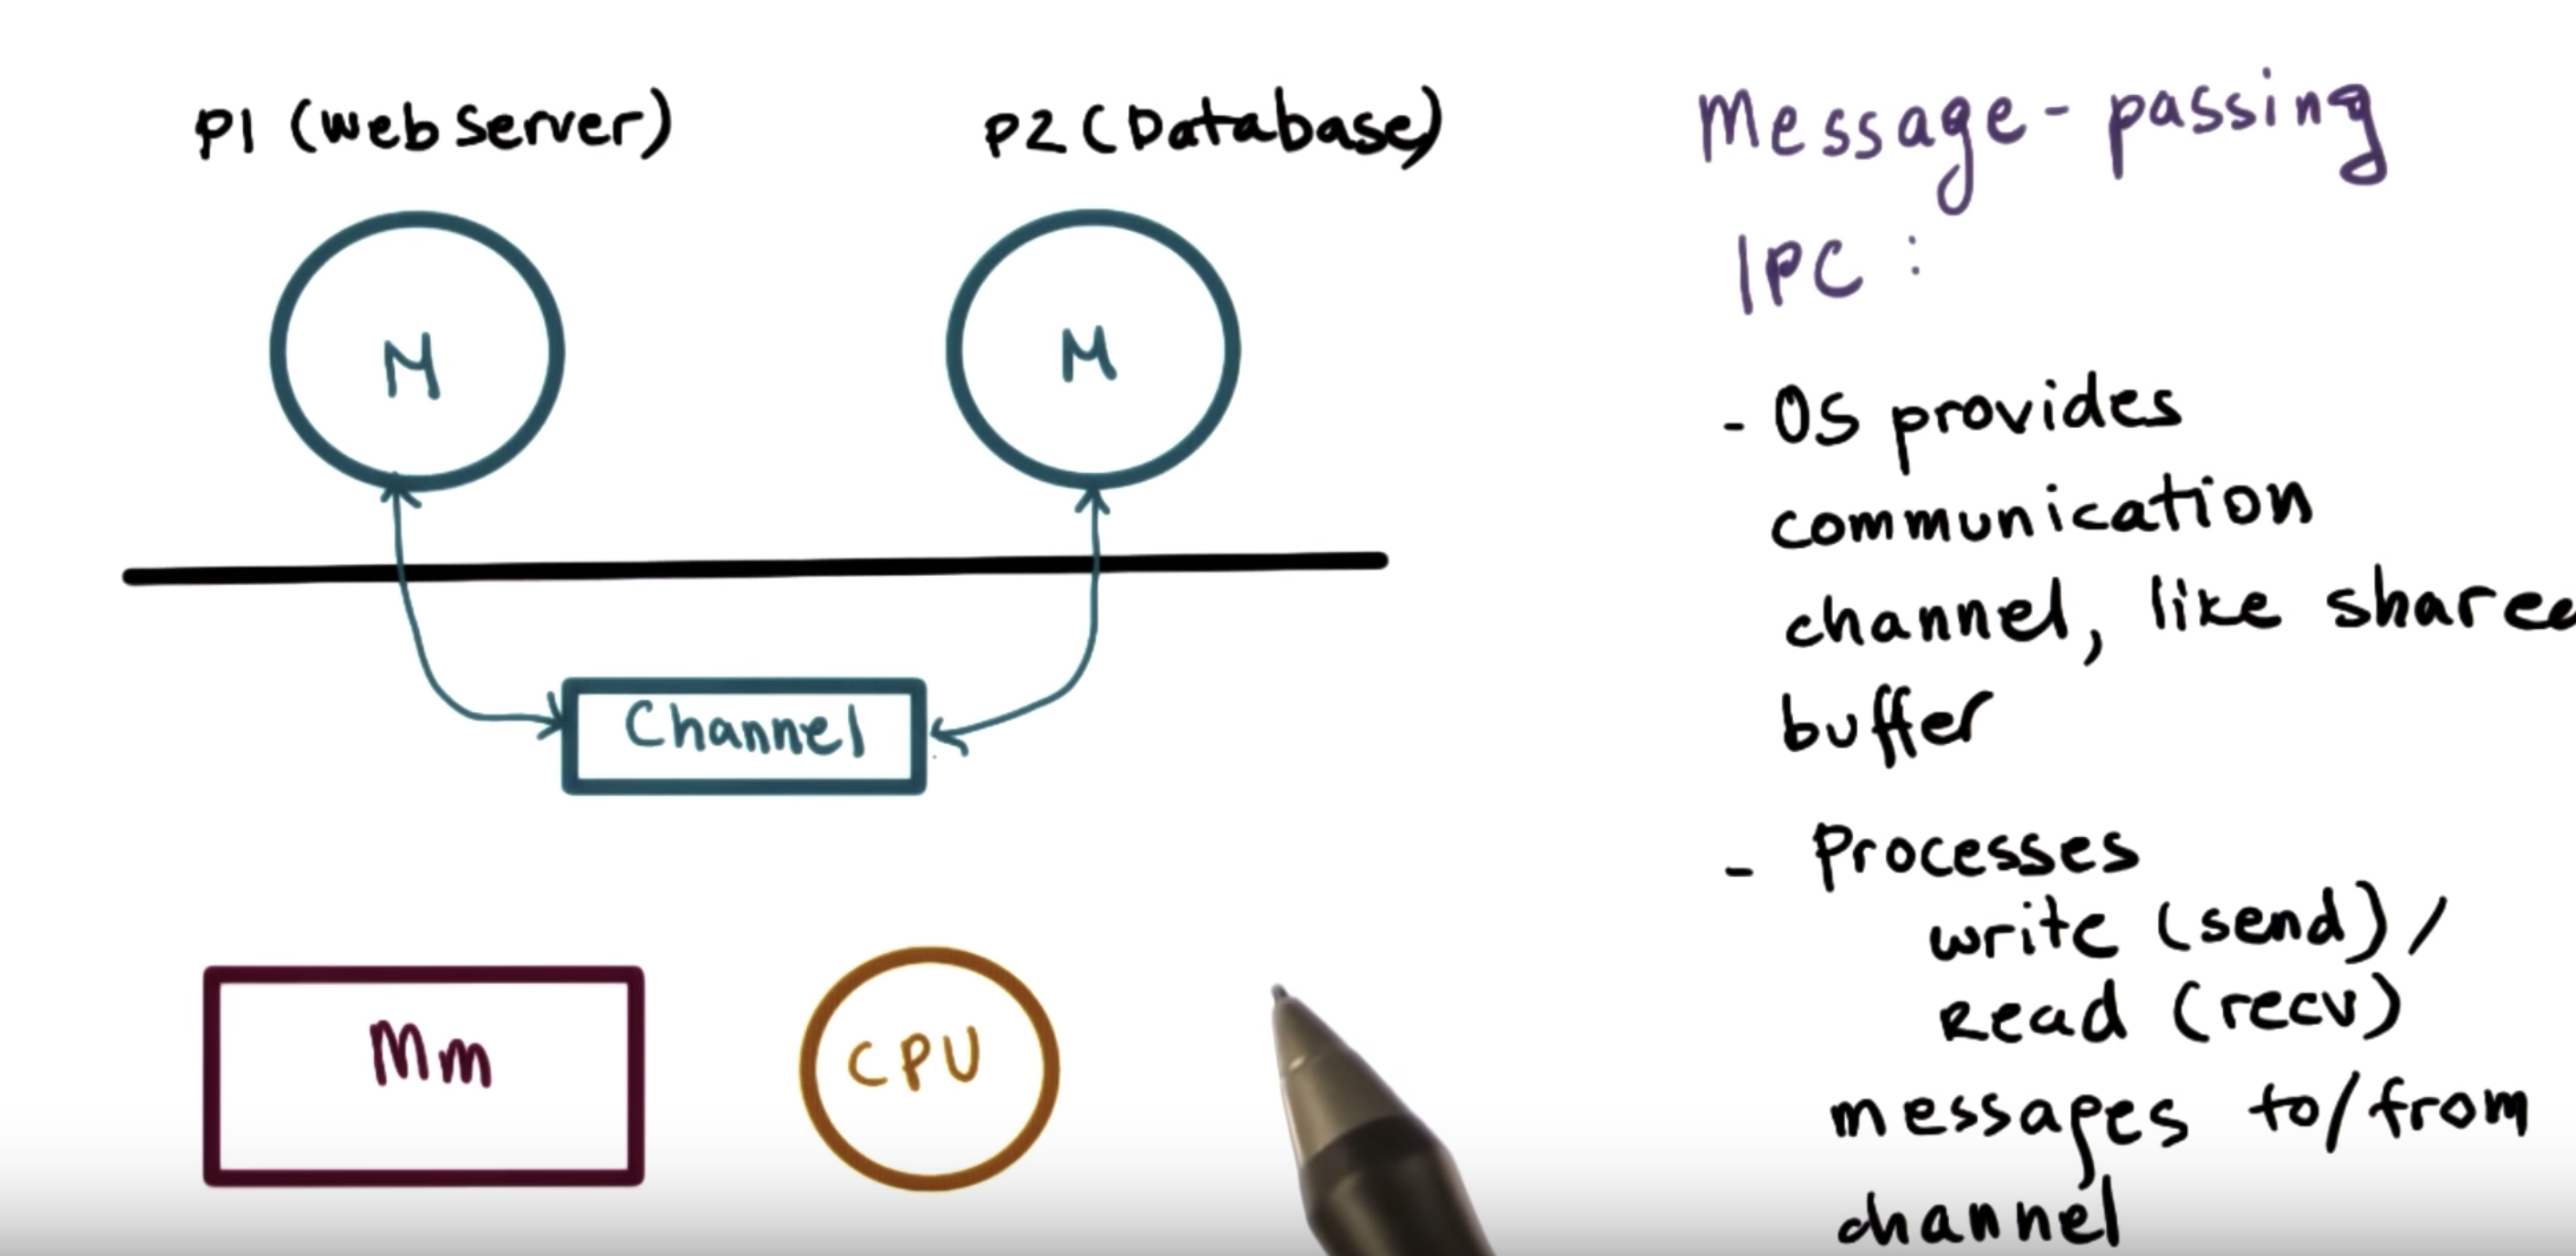 P1 (Web Server)
P2 (Database)
M
M
Channel
Mm
CPU
Message-passing
IPC :
- OS provides
communication
channel, like share
buffer
- Processes
write (send) /
Read (recv)
messages to/from
channel